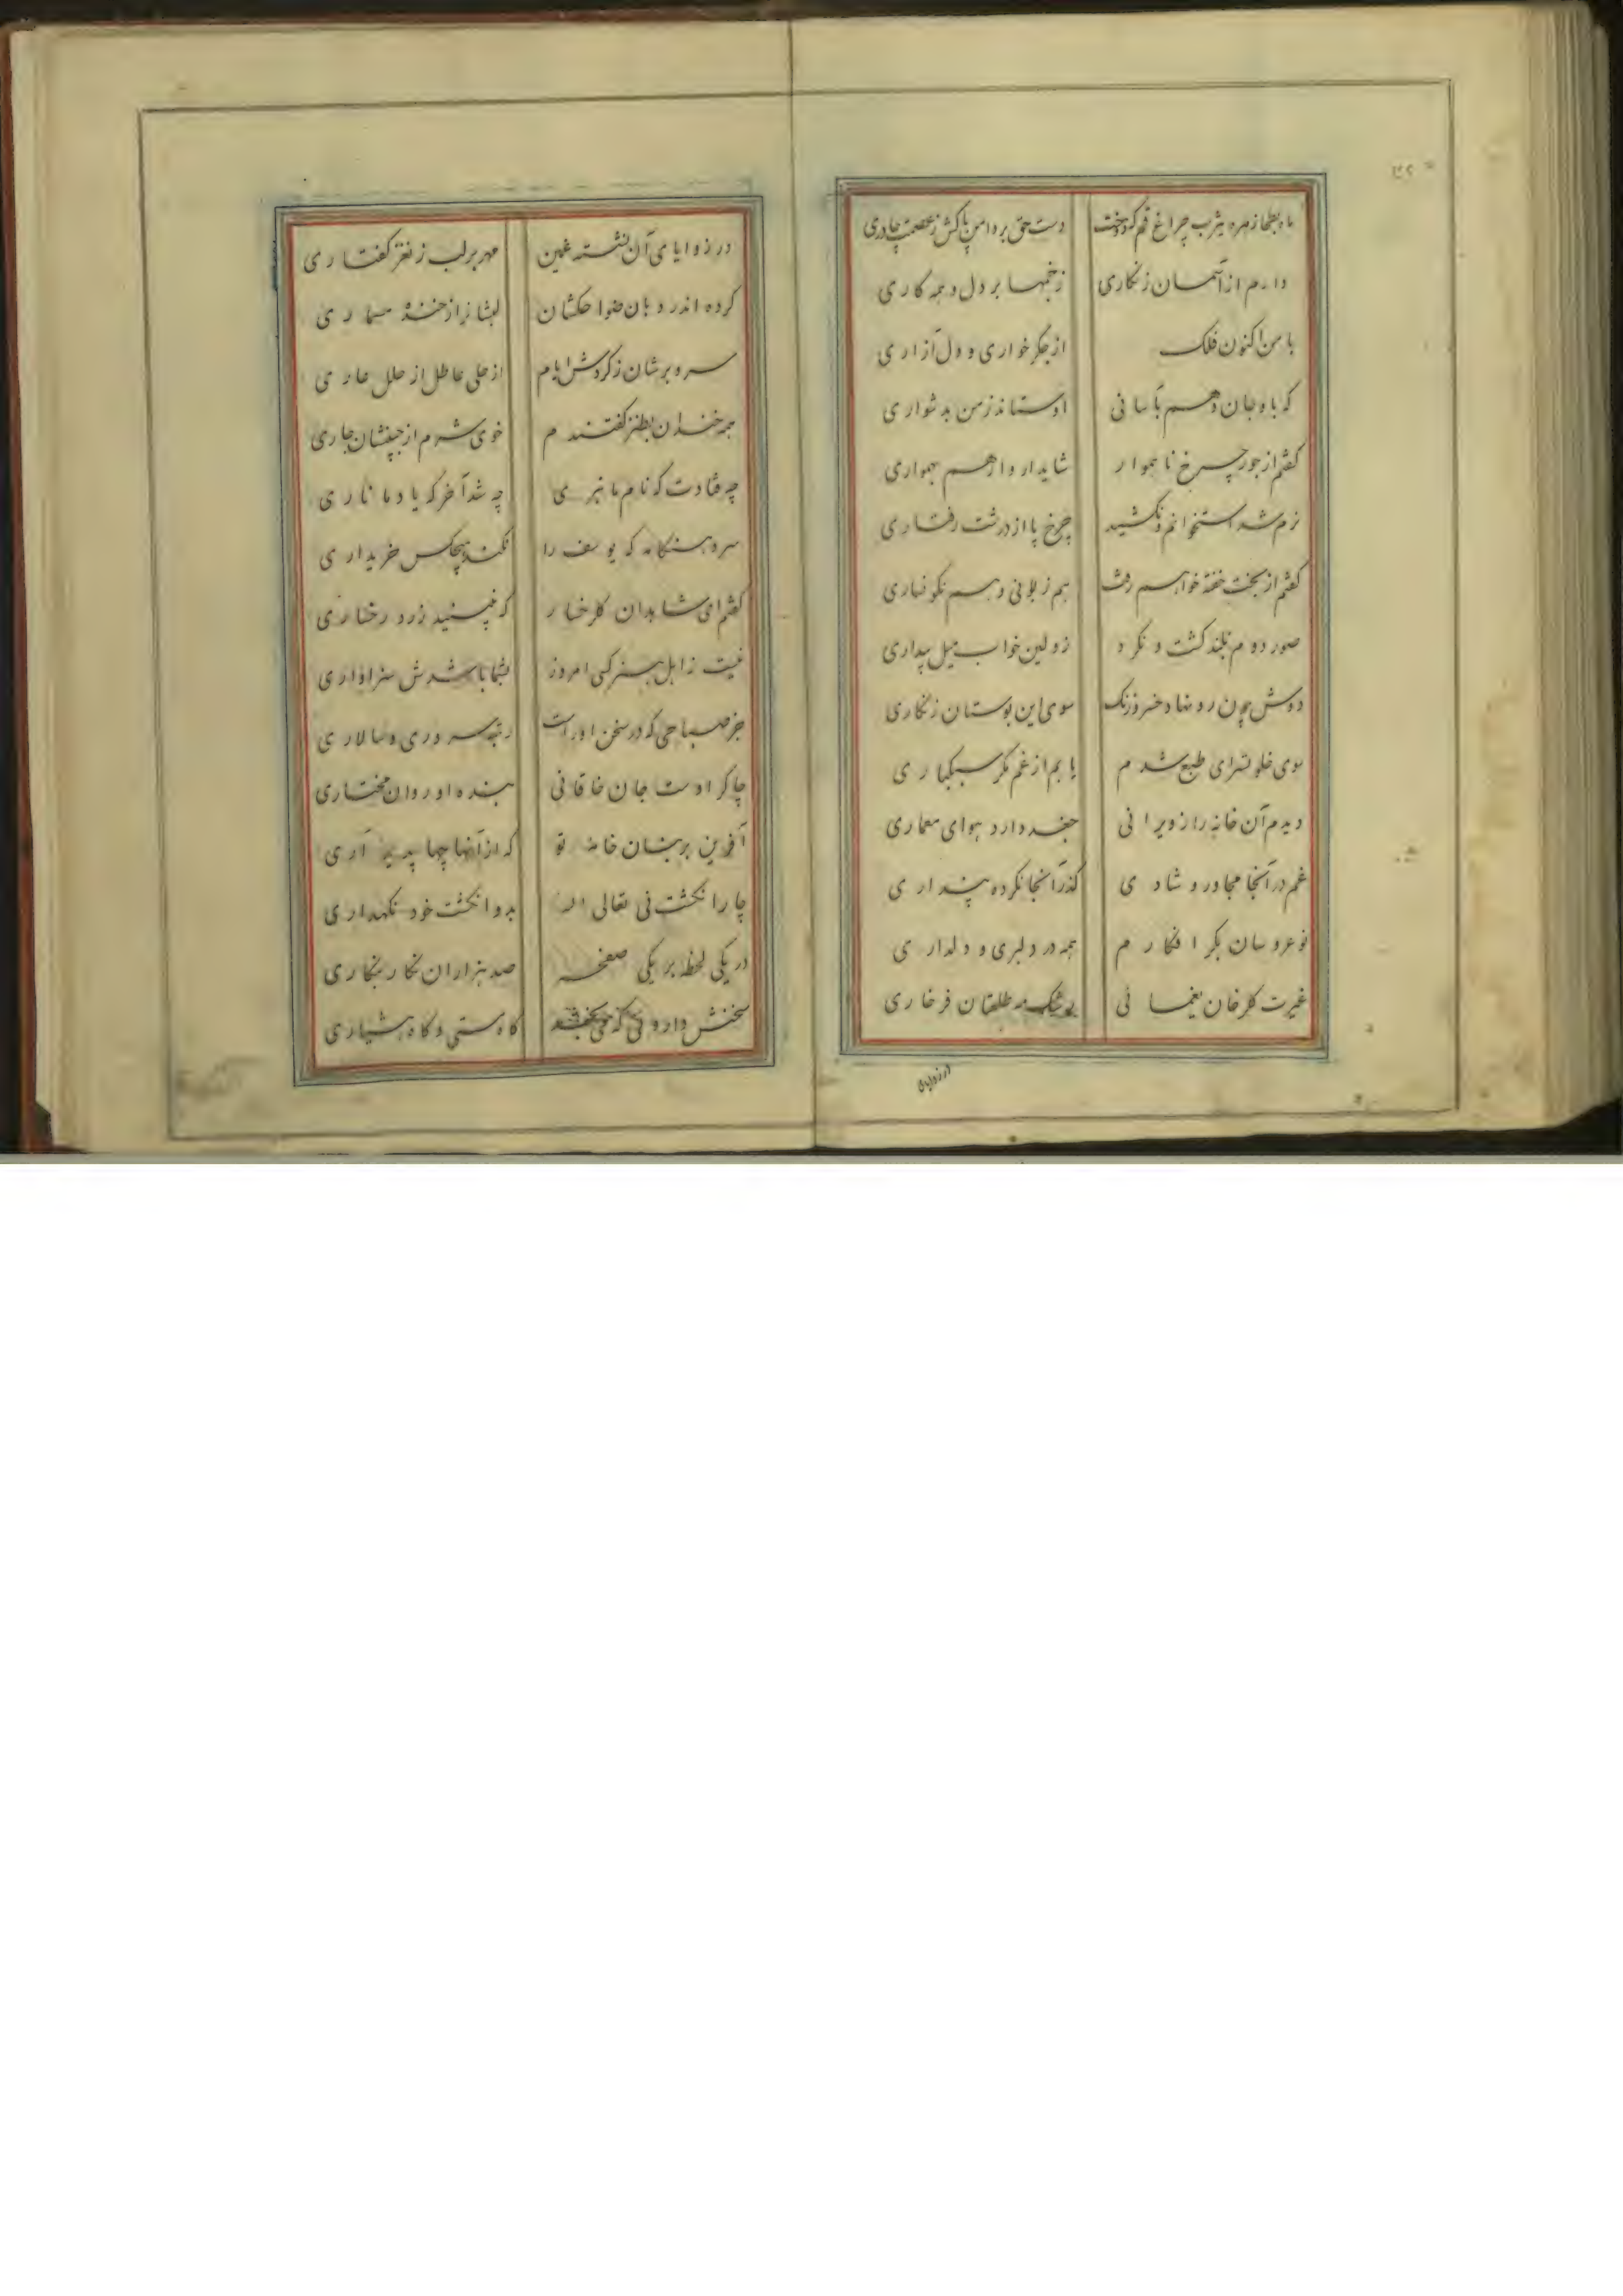 ماه بطحا زهره یثرب چراغ قم که دوخت دست حق بر دامن پاکش ز عصمت چادری
دارم از آسمان زنگاری زخمها بر دل و همه کاری
با من اکنون فلک از جگر خواری و دل آزاری
که باو جان دهم بآسانی او ستاند ز من بدشواری
گفتم از جور چرخ ناهموار شاید ار وارهم بهمواری
نرم شد استخوانم و نکشید چرخ پا از درشت رفتاری
گفتم از بخت خفته خواهم رفت هم زبونی و هم نگونساری
صور دوم بلند گشت و نکرد زولین خواب میل بیداری
دوش چون رو نهاد خسرو زنگ سوی این بوستان زنگاری
سوی خلوتسرای طبع شدم یابم از غم مگر سبکباری
دیدم آن خانه را ز ویرانی جغد دارد هوای معماری
غم در آنجا مجاور و شادی گذر آنجا نکرده پنداری
نوعروسان بکر افکارم همه در دلبری و دلداری
غیرت گلرخان یغمائی رشک مه طلعتان فرخاری
در زوایای آن نشسته غمین مهر بر لب ز نغز گفتاری
کرده اندر دهان ضواحکشان لبشانرا ز خنده مسماری
سر و برشان ز گردش ایام از حلی عاطل از حلل عاری
همه خندان بطنز گفتندم خوی شرم از جبینشان جاری
چه فتادت که نام ما نبری چه شد آخر که یاد ما ناری
سرد هنگامه که یوسف را نکند هیچکس خریداری
گفتم ای شاهدان گلرخسار که نبینید زرد رخساری
نیست ز اهل هنر کسی امروز بشما باشدش سزاواری
جز صباحی که در سخن او راست رتبه سروری و سالاری
چاکر اوست جان خاقانی بنده او روان مختاری
آفرین بر بنان خامه تو که از آنها چها پدید آری
چار انگشت نی تعالی الله بدو انگشت خود نگهداری
در یکی لحظه بر یکی صفحه صد هزاران نگار بنگاری
سخنش داروئی که می‌بخشد گاه مستی و گاه هشیاری
در زوایای